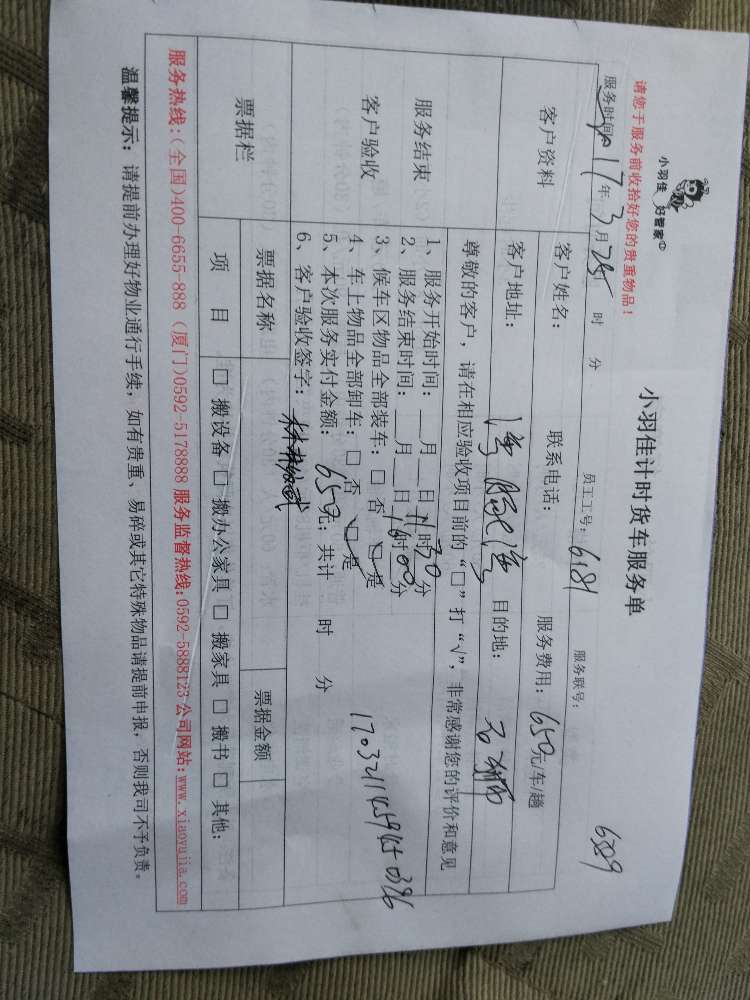 小羽佳 好管家
小羽佳计时货车服务单
请您于服务前收拾好您的贵重物品！
6589
服务时间: 17年3月25 时 分 员工工号: 6181 服务联号:
客户资料
客户姓名: 联系电话: 服务费用: 650元/车/趟
客户地址: 目的地:
尊敬的客户，请在相应验收项目前的“□”打“√”，非常感谢您的评价和意见
服务结束
客户验收
1、服务开始时间: __月__日11时30分
2、服务结束时间: __月__日16时00分
3、候车区物品全部装车: □ 否 □ 是
4、车上物品全部卸车: □ 否 □ 是
5、本次服务实付金额: 650元; 共计 时 分
6、客户验收签字:
票据栏
票据名称 票据金额
项 目 □ 搬设备 □ 搬办公家具 □ 搬家具 □ 搬书 □ 其他:
服务热线:(全国)400-6655-888 (厦门)0592-5178888 服务监督热线:0592-5888123 公司网站:www.xiaoyujia.com
温馨提示: 请提前办理好物业通行手续，如有贵重、易碎或其它特殊物品请提前申报，否则我司不予负责。